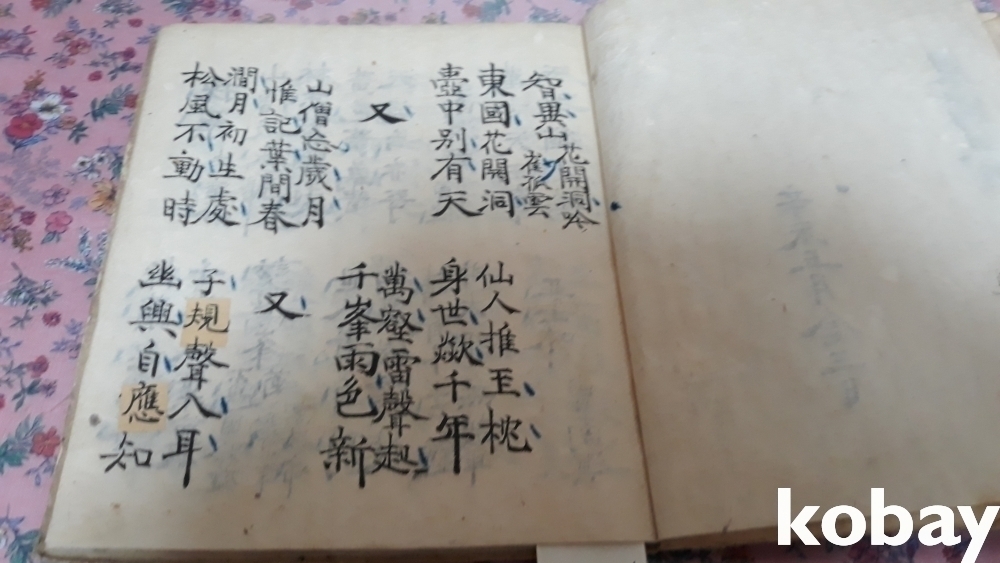 智異山花開洞吟
崔孤雲
東國花開洞
壺中別有天
仙人推玉枕
身世欻千年
又
萬壑雷聲起
千峯雨色新
山僧忘歲月
惟記葉間春
又
澗月初生處
松風不動時
子規聲入耳
幽興自應知
kobay